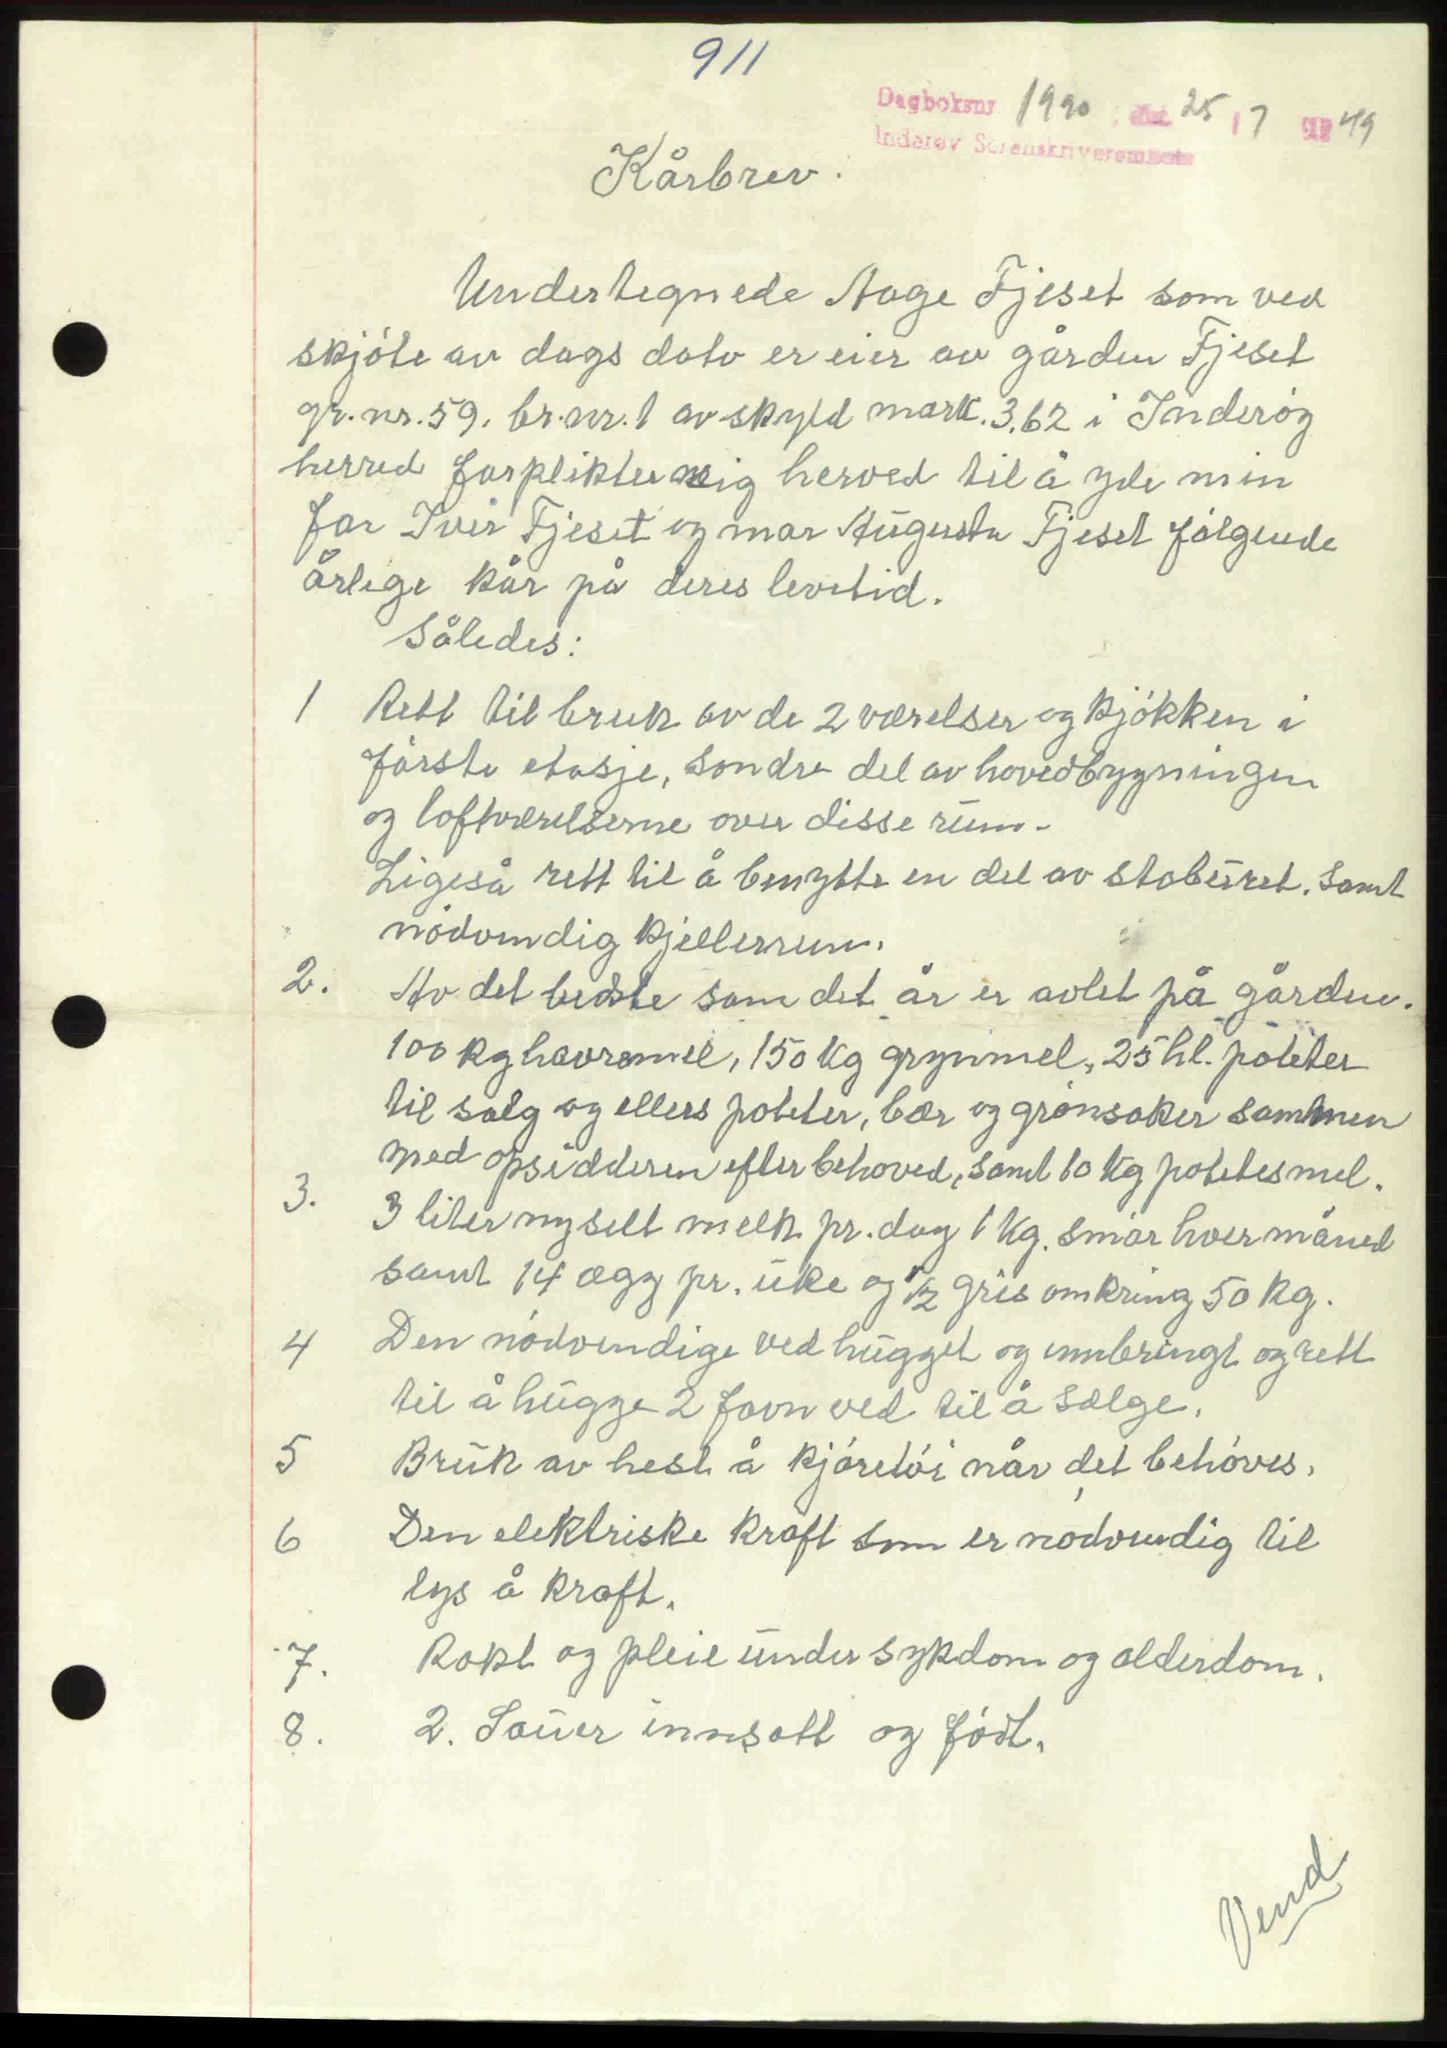 911
Dagboksnr 1990, dat. 25/7 1949
Inderøy Sorenskriverembete
Kårbrev.
Undertegnede Aage Fjeset som ved
skjöte av dags dato er eier av gården Fjeset
gr.nr.59. br.nr.1 av skyld mark.3,62 i Inderöy
herred forplikter mig herved til å yde min
far Iver Fjeset og mor Augusta Fjeset fölgende
årlige kår på deres levetid.
Således:
1 Rett til bruk av de 2 værelser og kjökken i
förste etasje, söndre del av hovedbygningen
og loftværelserne over disse rum.
Ligeså rett til å benytte en del av staburet. Samt
nödvendig kjellerrum.
2. Av det bedste som det år er avlet på gården.
100 kg havremel, 150 kg grynmel, 25 hl. poteter
til salg og ellers poteter, bær og grönsaker sammen
med opsidderen efter behoved, samt 10 kg potetesmel.
3. 3 liter nysilt melk pr. dag 1 kg. smör hver måned
samt 14 ægg pr. uke og 1/2 gris omkring 50 kg.
4 Den nödvendige ved hugget og innbringt og rett
til å hugge 2 favn ved til å sælge.
5 Bruk av hest å kjöretöi når det behöves.
6 Den elektriske kraft som er nödvendig til
lys å kraft.
7. Rökt og pleie under sykdom og alderdom.
8. 2. Sauer innsatt og född.
Vend